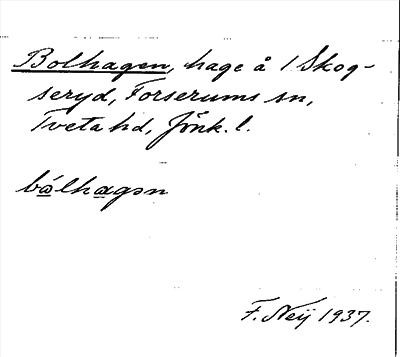 Bolhagen, hage å 1 Skog-
seryd, Forserums sn,
Tveta hd, Jönk. l.
bålhagən
F. Neij 1937.